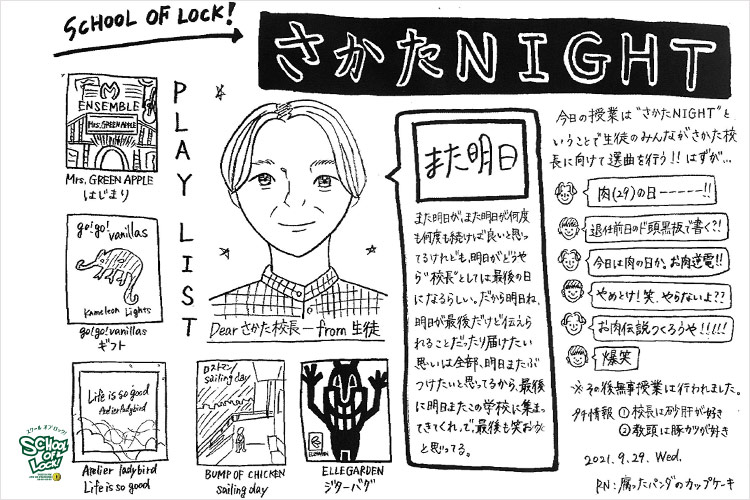 SCHOOL OF LOCK!
さかたNIGHT
PLAY LIST
M
ENSEMBLE
Mrs. GREEN APPLE
Mrs. GREEN APPLE
はじまり
go!go!
vanillas
Kameleon Lights
go!go!vanillas
ギフト
Life is so good
Atelier ladybird
Atelier ladybird
Life is so good
ロストマン/
sailing day
BUMP OF CHICKEN
sailing day
ELLEGARDEN
ジターバグ
Dear さかた校長 ― from 生徒
また明日
また明日が、また明日が何度
も何度も続けば良いと思っ
てるけれども、明日がどうや
ら"校長"としては最後の日
になるらしい。だから明日ね、
明日が最後だけど伝えら
れることだったり届けたい
思いは全部、明日またぶ
つけたいと思ってるから、最後
に明日またこの学校に集まっ
てきてくれ。で、最後も笑おう
と思ってる。
今日の授業は"さかたNIGHT"と
いうことで生徒のみんながさかた校
長に向けて選曲を行う!!はずが…
肉(29)の日ーーーーー!!
退任前日のド頭黒板で書く?!
今日は肉の日か、お肉逆電!!
やめとけ!笑、やらないよ??
お肉伝説つくろうや!!!!!
爆笑
※その後無事授業は行われました。
タチ情報 ①校長は砂肝が好き
②教頭は豚カツが好き
2021.9.29. Wed.
RN:腐ったパンダのカップケーキ
スクール オブ ロック!
SCHOOL
OF
LOCK!